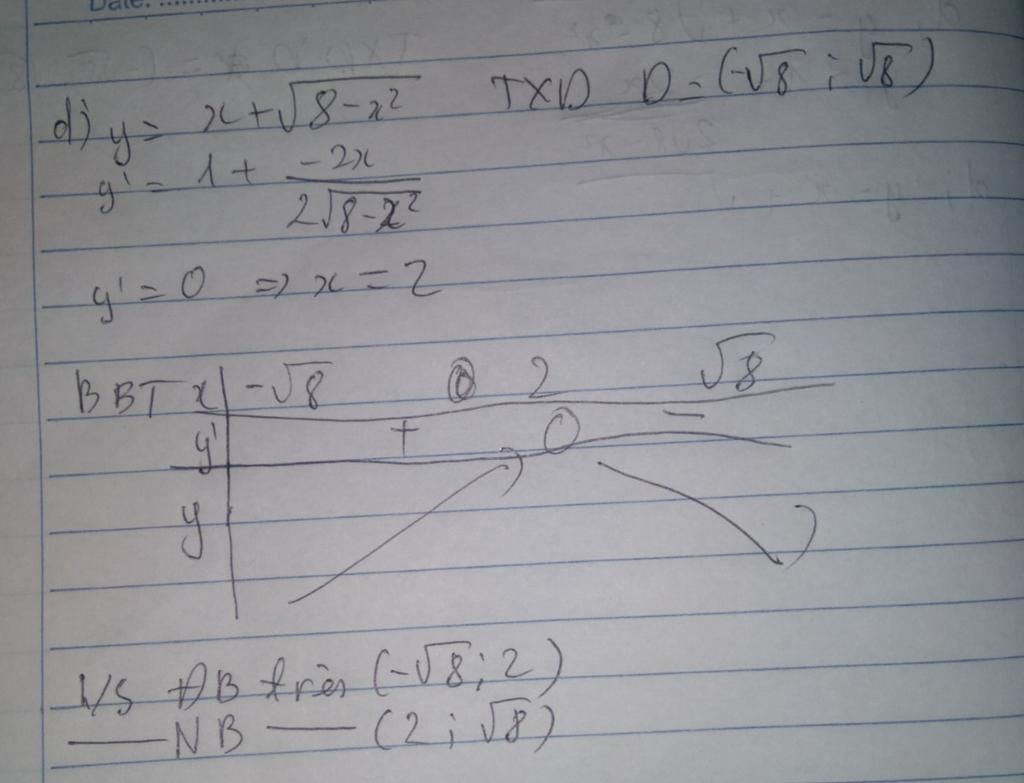 Date: ..............
d) y = x + √(8 - x²) TXD D = (-√8 ; √8)
y' = 1 + (-2x)/(2√(8 - x²))
y' = 0 => x = 2
BBT x -√8 2 √8
y' + 0 -
y
H/S ĐB trên (-√8 ; 2)
—— NB —— (2 ; √8)